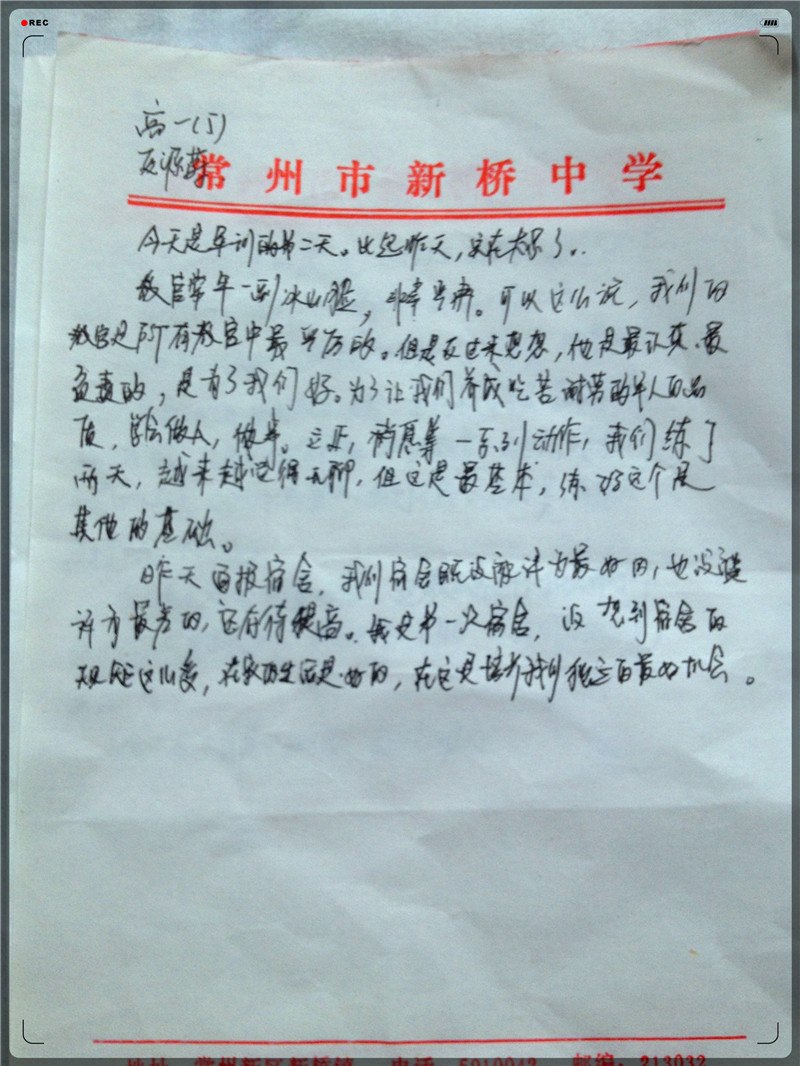 REC
高一(5)
常州市新桥中学
今天是军训的第二天。比起昨天,实在太累了..
教官常年一副冰山脸,非常严肃。可以这么说,我们的
教官是所有教官中最严厉的。但是反过来想想,他是最认真、最
负责的,是为了我们好。为了让我们养成吃苦耐劳的军人的品
质,学会做人,做事。立正,稍息等一系列动作,我们练了
两天,越来越觉得无聊,但这是最基本,练好这个是
其他的基础。
昨天百报宿舍,我们宿舍既没被评为最好的,也没被
评为最差的,还有待提高。我是第一次宿舍,没想到宿舍的
规矩这么多,在家的生活是好的,在这是培养我们独立的最好机会。
地址 常州新区新桥镇 电话 5910042 邮编:213032